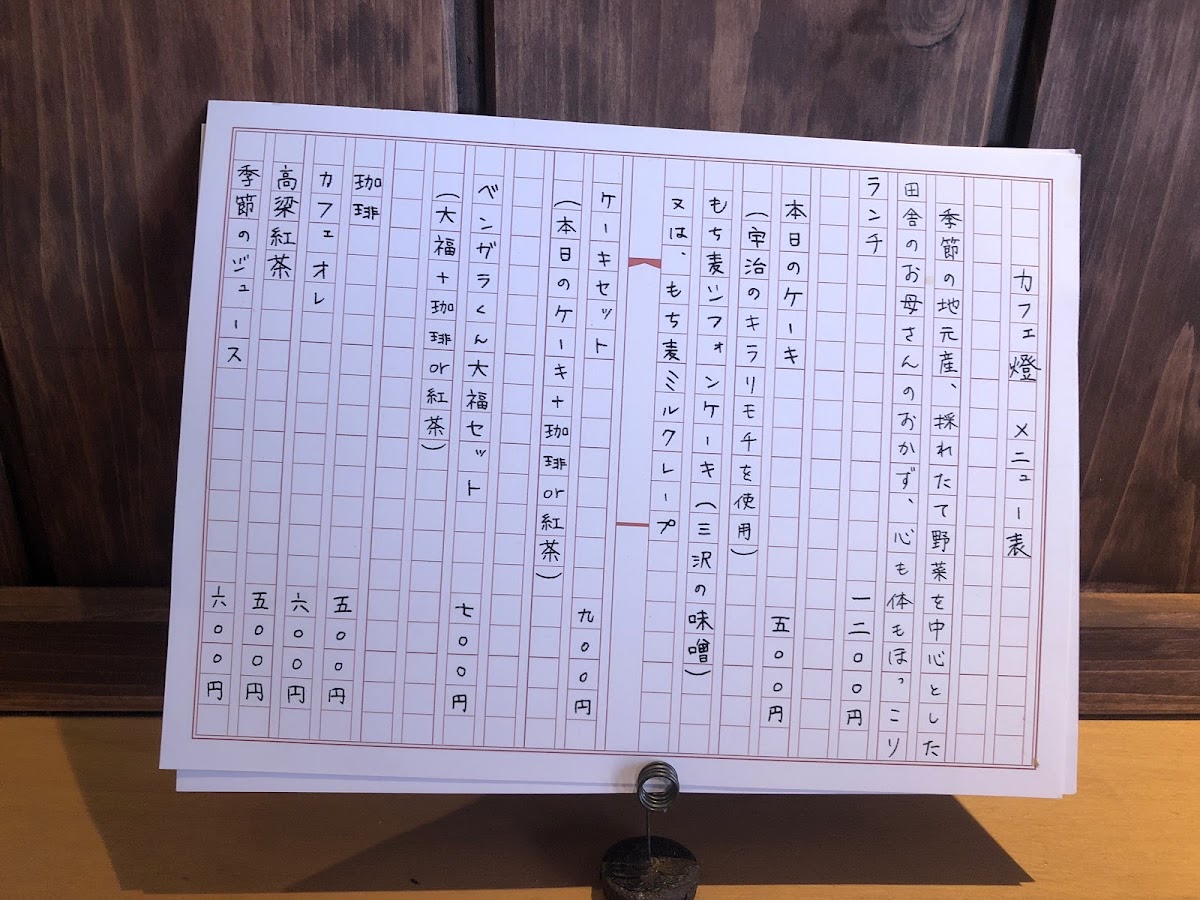 カフェ燈 メニュー表
季節の地元産、採れたて野菜を中心とした
田舎のお母さんのおかず、心も体もほっこり
ランチ 一二〇〇円
本日のケーキ 五〇〇円
（宇治のキラリモチを使用）
もち麦シフォンケーキ（三沢の味噌）
又は、もち麦ミルクレープ
ケーキセット 九〇〇円
（本日のケーキ＋珈琲or紅茶）
ベンガラくん大福セット 七〇〇円
（大福＋珈琲or紅茶）
珈琲 五〇〇円
カフェオレ 六〇〇円
高梁紅茶 五〇〇円
季節のジュース 六〇〇円